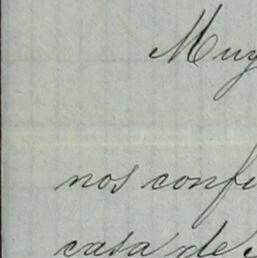 Muy
nos confi
casa de